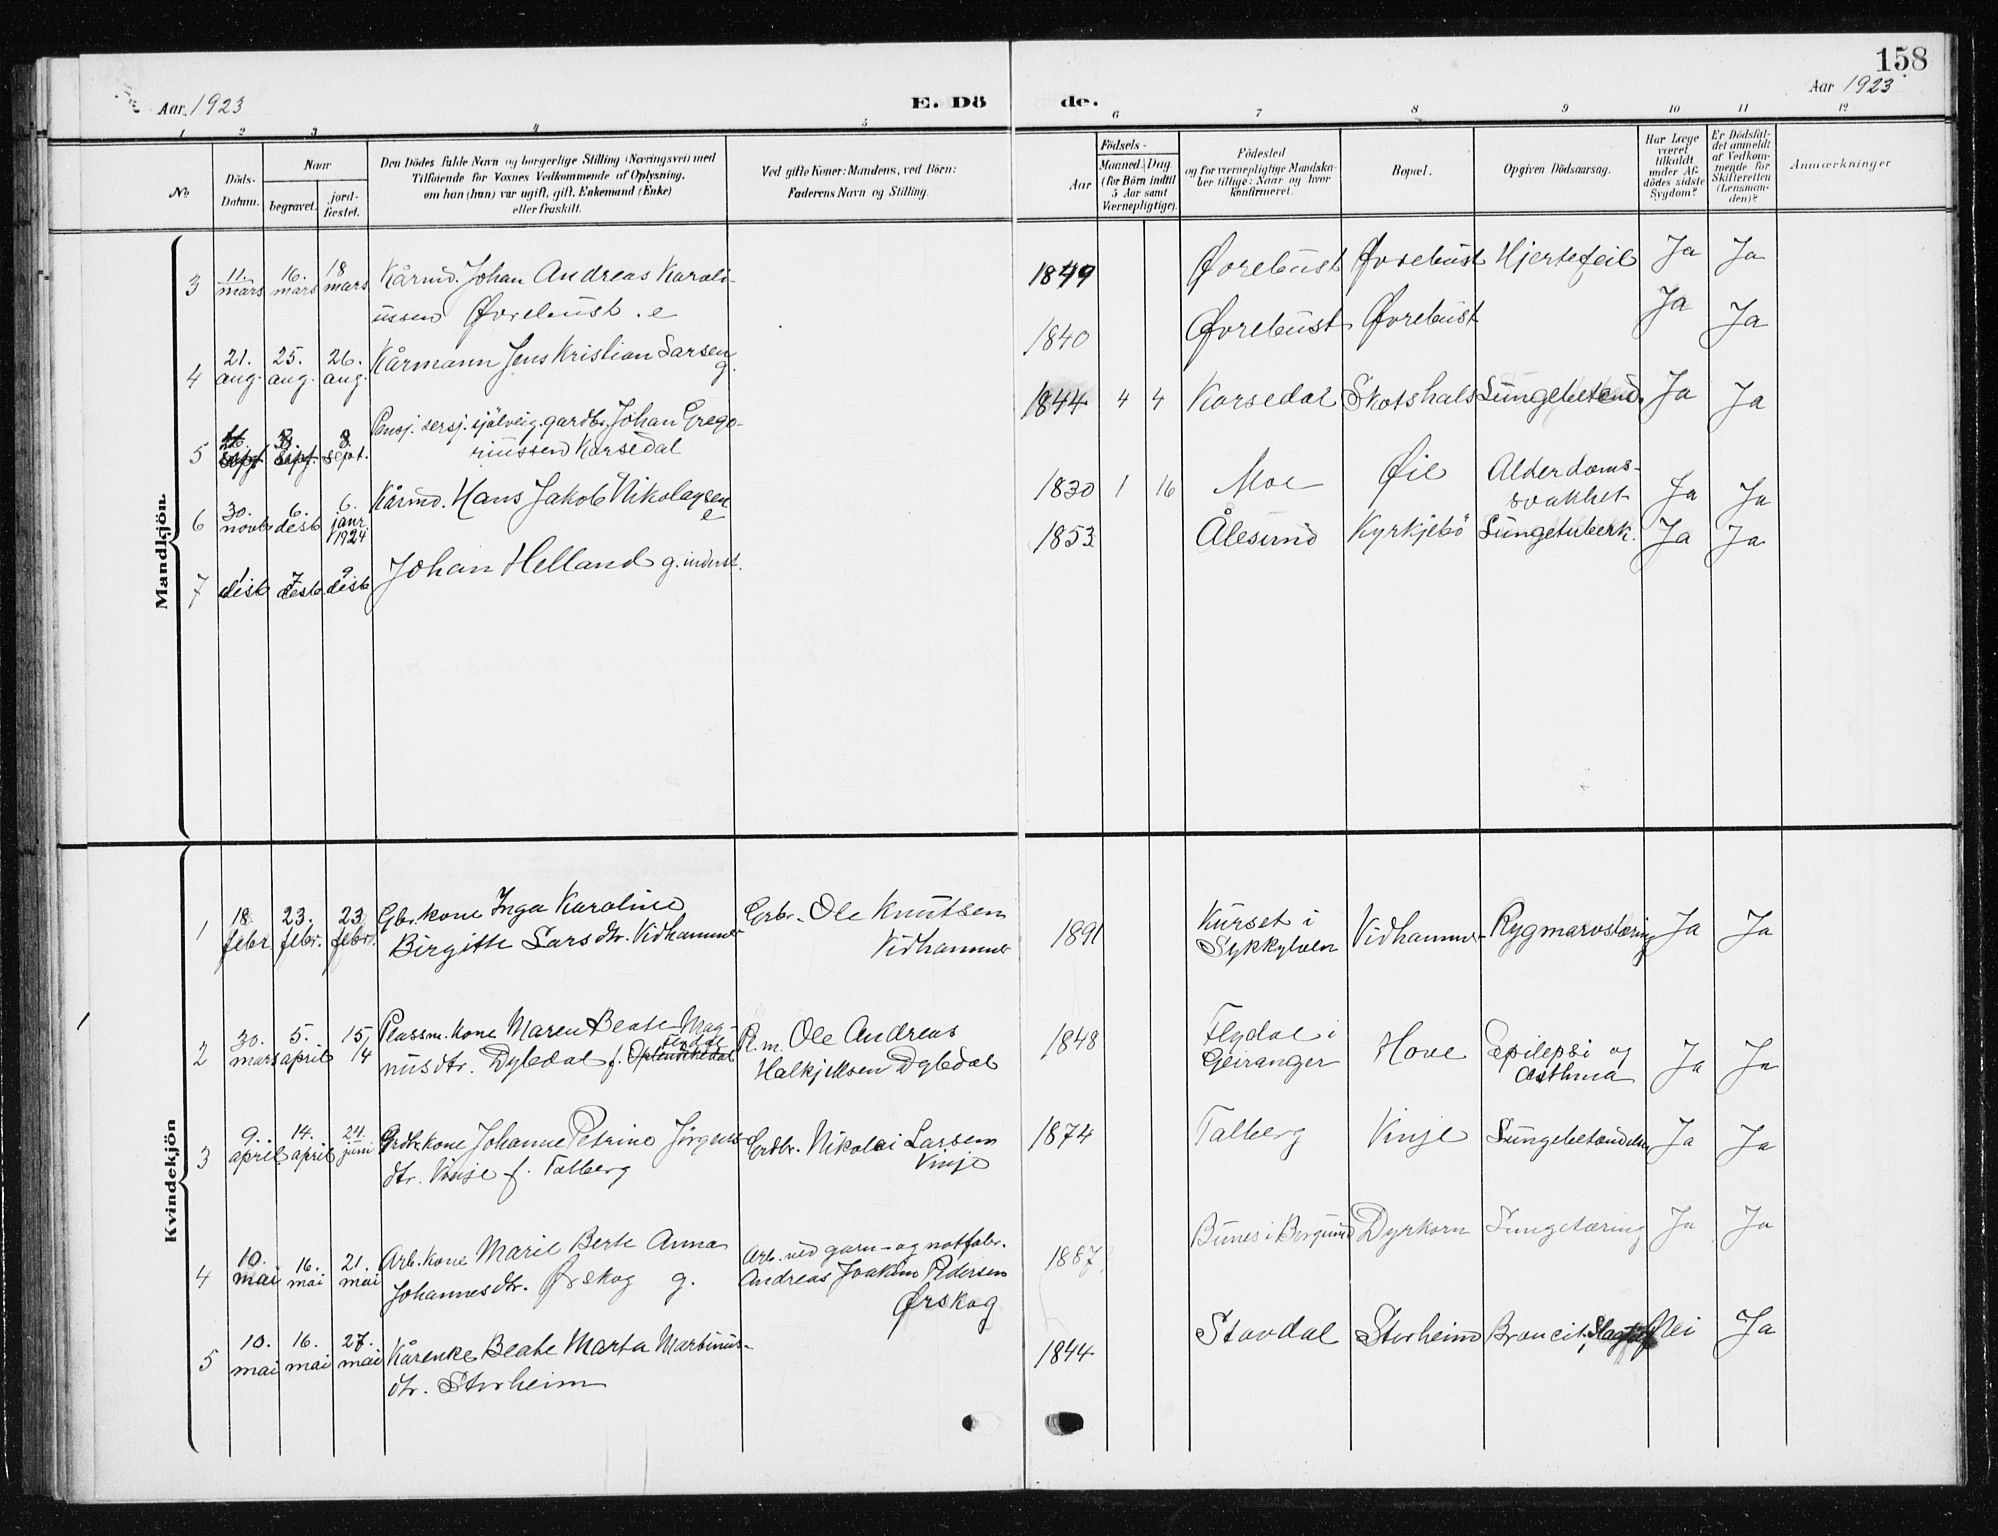 158
Aar 1923
E. Dö
de.
Aar 1923
1 2 3 4 5 6 7 8 9 10 11 12
No
Döds-Datum.
Naar
begravet.
jord-fæstet.
Den Dödes fulde Navn og borgerlige Stilling (Næringsvei) med
Tilföiende for Voxnes Vedkommende af Oplysning,
om han (hun) var ugift, gift, Enkemand (Enke)
eller fraskilt.
Ved gifte Koner: Mandens, ved Börn:
Faderens Navn og Stilling.
Födsels-
Aar
Maaned. Dag.
(for Börn indtil
5 Aar samt
Værnepligtige).
Födested
og for værnepligtige Mandska-
ber tillige: Naar og hvor
konfirmeret.
Bopæl.
Opgiven Dödsaarsag.
Har Læge
været
tilkaldt
under Af-
dödes sidste
Sygdom?
Er Dödsfal-
det anmeldt
af Vedkom-
mende for
Skifteretten
(Lensman-
den)?
Anmærkninger
Mandkjön.
3 11. mars 16. mars 18 mars Kårmd. Johan Andreas Karoli-
ussen Øvrebust . e
1849 Øvrebust Øvrebust Hjertefeil Ja Ja
4 21. aug. 25. aug. 26. aug. Kårmann Jens Kristian Larsen
g.
1840 Øvrebust Øvrebust Ja Ja
5 sept. 8. sept. Pensj. sersj. sjölveig. gardbr. Johan Grego-
riussen Karsedal
1844 4 4 Korsedal Skotshals Lungebetend. Ja Ja
6 30. novb 6. desb 6. janr. 1924 Kårmd. Hans Jakob Nikolaysen
e
1830 1 16 Moe Øie Alderdoms-
svakhet Ja Ja
7 1 desb 7 desb 9 desb Johan Helland g. inderst.
1853 Ålesund Kyrkjebö Lungetuberk. Ja Ja
Kvindekjön
1 18. febr 23. febr. 23 febr. Gbr.kone Inga Karoline
Birgitte Larsdtr. Vidhammer
Grbr. Ole Knutsen
Vidhammer
1891 Kurset i
Sykkylven Vidhammer Rygmarvstæring Ja Ja
2 30. mars 5. april 15/14 Plassm. kone Maren Beate Mag-
nusdtr. Dyledal f.
Pl.m. Ole Andreas
Halkjellsen Dyledal
1848 Flydal i
Geiranger Hove Epilepsi og
asthma Ja Ja
3 9. april 14. april 24. juni Grdbr.kone Johanne Petrine Jörgens-
dtr. Vinje f. Talberg
Grdbr. Nikolai Larsen
Vinje
1874 Talberg Vinje Lungebetændelse Ja Ja
4 10. mai 16. mai 21. mai Arb.kone Marie Berte Anna
Johannesdtr. Ørskog g.
Arb. ved garn- og notfabr.
Andreas Joakim Pedersen
Ørskog
1887 Bunes i Borgund Dyrkorn Lungetæring Ja Ja
5 10. mai 16. mai 27. mai Kårenke Beate Marta Martinus-
dtr. Storheim
1844 Stavdal Storheim Broncit, Nei Ja